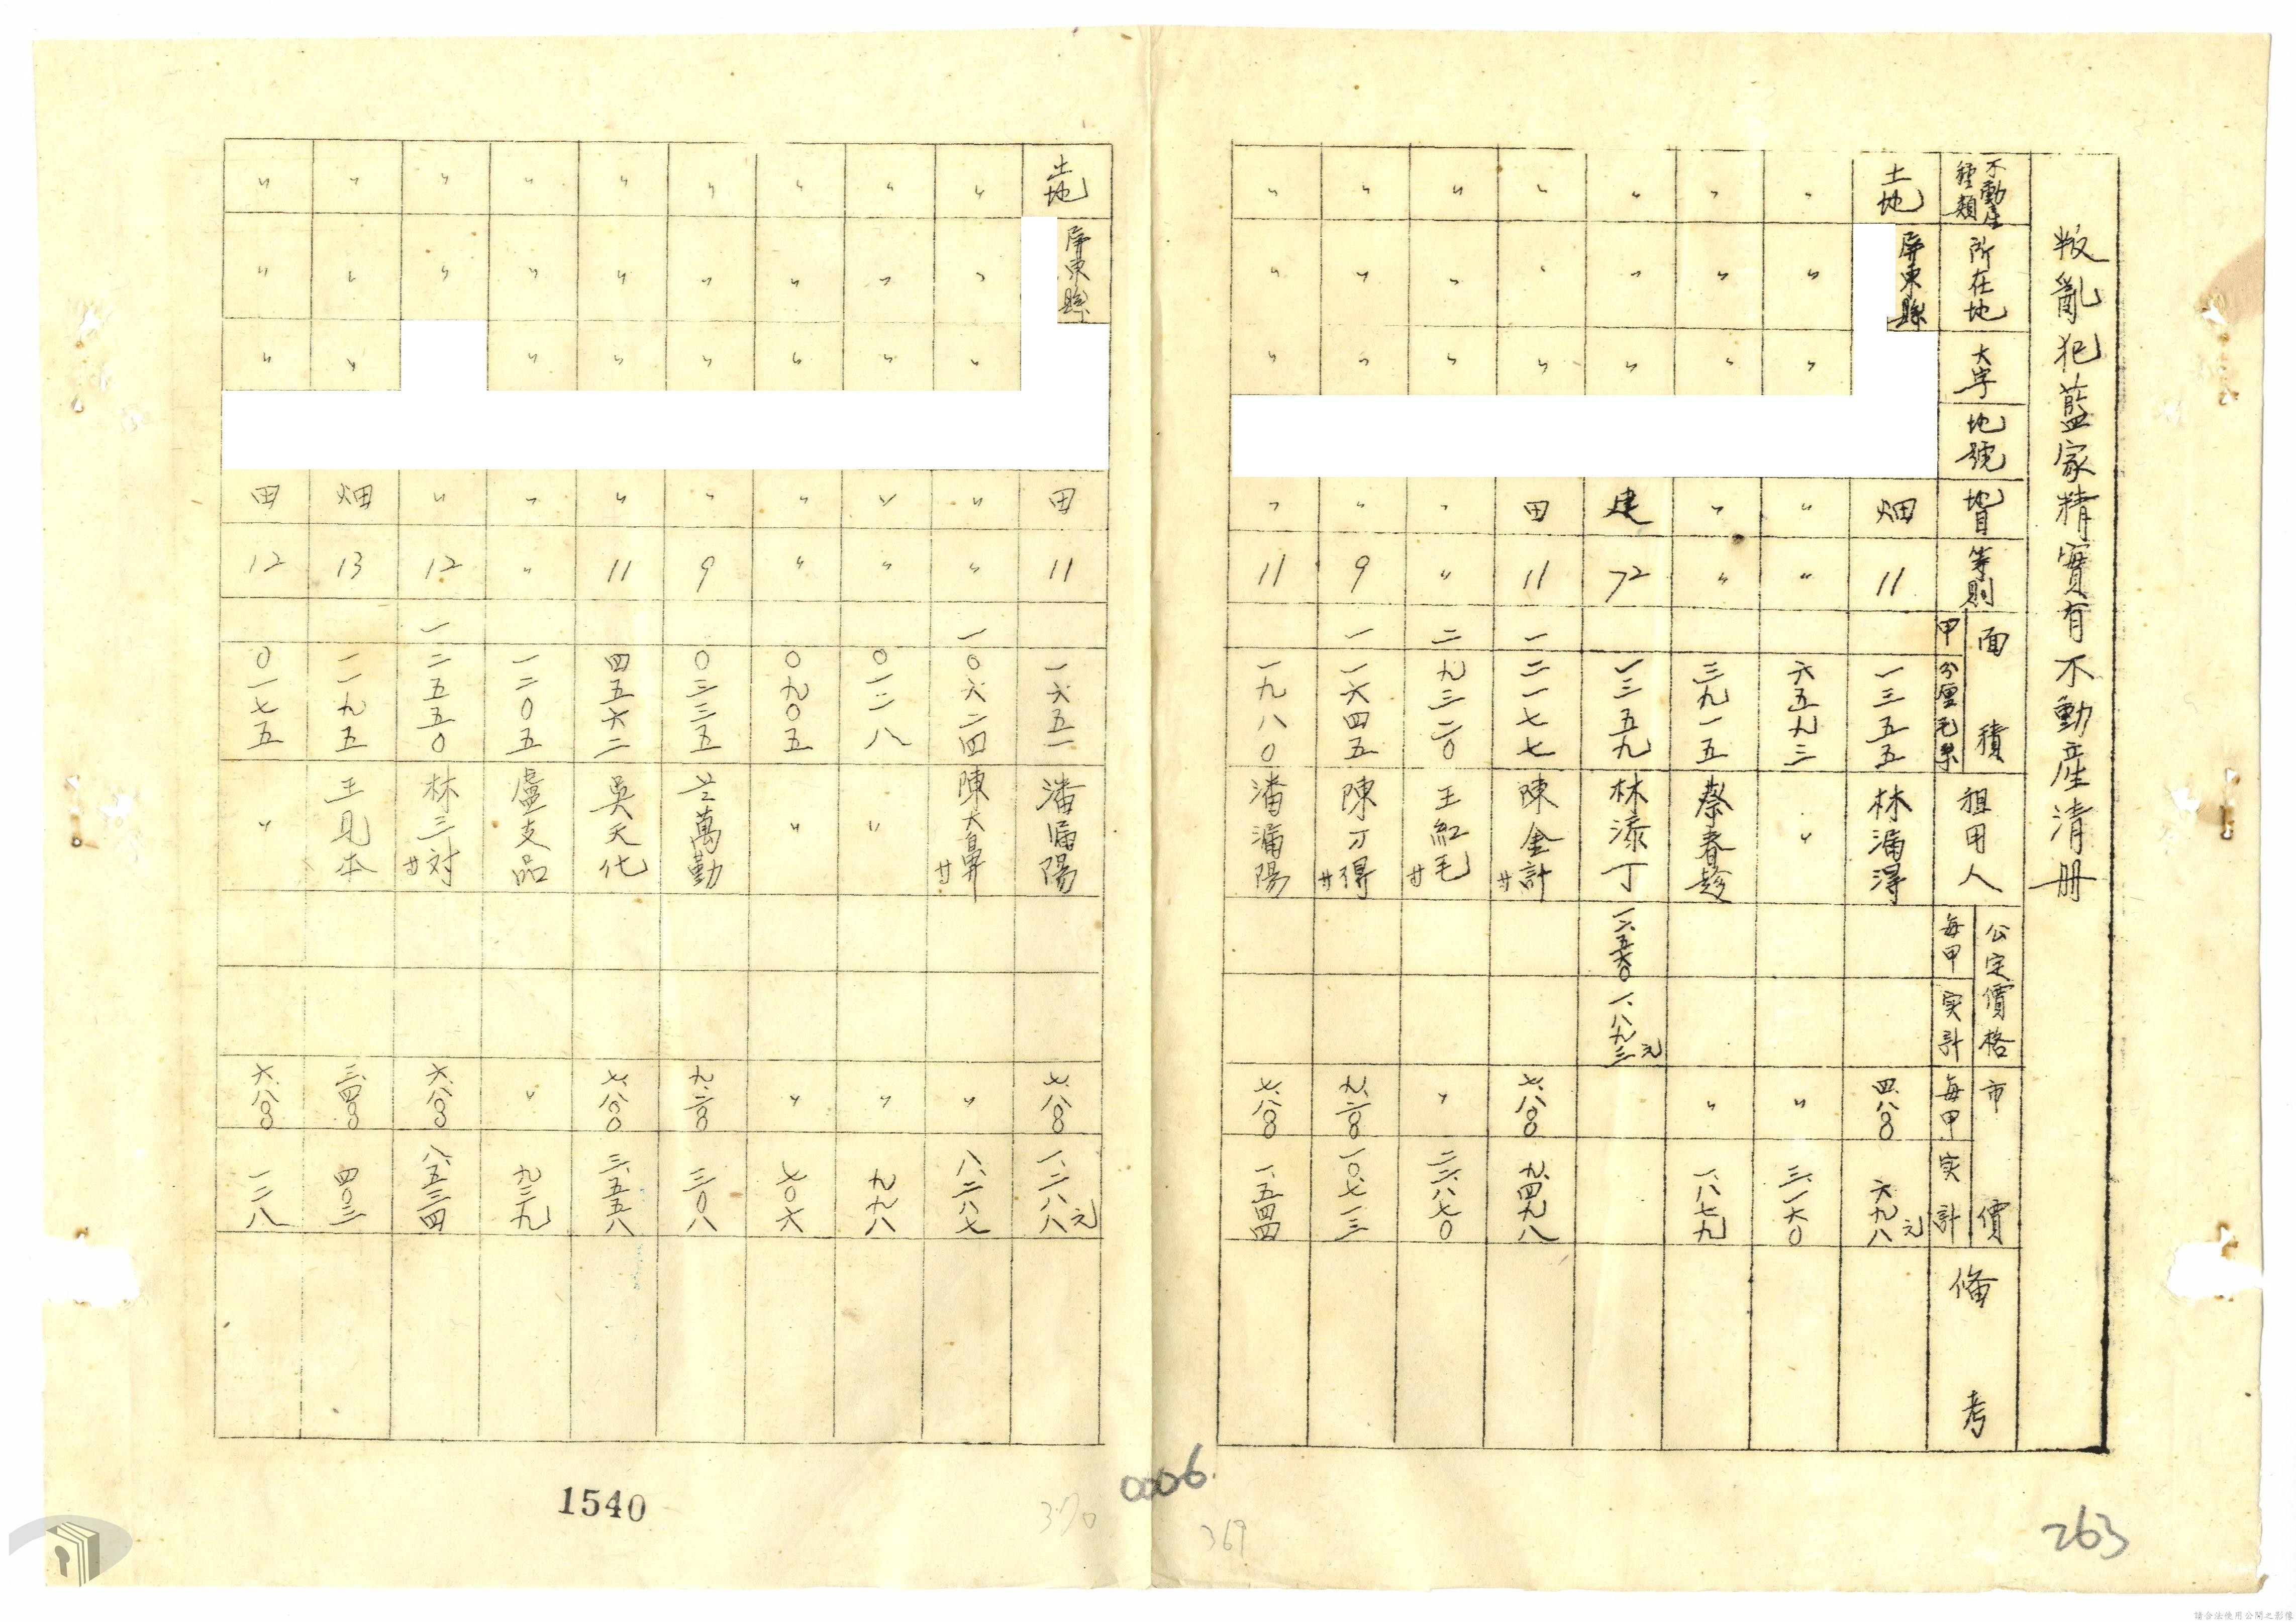 叛亂犯藍家精實有不動產清册
不動產種類 所在地 大字 地號 地目 等則 面積 甲 分厘毛糸 租用人 公定價格 每甲 实計 市價 每甲 实計 俻考
土地 屏東縣 畑 11 一三五五 林漏淂 四、八〇〇 六九八元
〃 〃 〃 〃 〃 六五九三 〃 〃 三、一六〇
〃 〃 〃 〃 〃 三九一五 蔡春 〃 一、八七九
〃 〃 〃 建 72 一三五九 林漆丁 一、八九三元
〃 〃 〃 田 11 一 二一七七 陳金計 廿 七、八〇〇 九、四九八
〃 〃 〃 〃 〃 二 九三二〇 王紅毛 廿 〃 二二、八七〇
〃 〃 〃 〃 9 一 一六四五 陳刀得 廿 九、二〇〇 一〇、七一三
〃 〃 〃 〃 11 一九八〇 潘漏陽 七、八〇〇 一、五四四
土地 屏東縣 田 11 一六五一 潘漏陽 七、八〇〇 一、二八八元
〃 〃 〃 〃 〃 一 〇六二四 陳大鼻 廿 〃 八、二八七
〃 〃 〃 〃 〃 〇一二八 〃 〃 九九八
〃 〃 〃 〃 〃 〇九〇五 〃 〃 七〇六
〃 〃 〃 〃 9 〇三三五 萬勤 九、二〇〇 三〇八
〃 〃 〃 〃 11 四五六二 吳天化 七、八〇〇 三、五五八
〃 〃 〃 〃 〃 一二〇五 盧支品 〃 九三九
〃 〃 〃 12 一 二五五〇 林三対 廿 六、八〇〇 八、五三四
〃 〃 〃 畑 13 一一九五 王見本 三、四〇〇 四〇三
〃 〃 〃 田 12 〇一七五 〃 六、八〇〇 一一八
1540
370
0006
369
263
請合法使用公開之影像